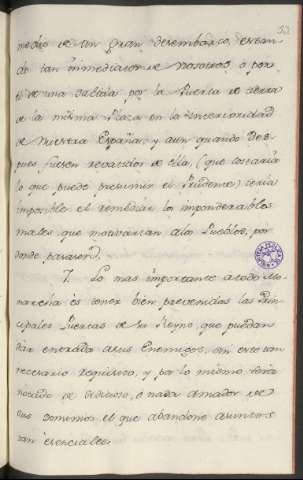 medio de un gran desembarco, estan
do tan inmediatos de nosotros, ó por
de una Salida por la Puerta de tierra
de la misma Plaza en la interioridad
de nuestra España; y aun quando des
pues fuesen rechazados de ella, (que costaria
lo que puede presumir el Prudente) seria
imposible el remediar los imponderables
males que motivarian a los Pueblos, por
donde pasaron.
7. Lo mas importante a todo Mo
narcha es tener bien prevenidas las Prin
cipales Puertas de su Reyno, que puedan
dar entrada a sus Enemigos, sin este tan
necesario requisito, y por lo mismo seria
notado de ó nada amador de
sus Dominios el que abandone asuntos
tan esenciales.